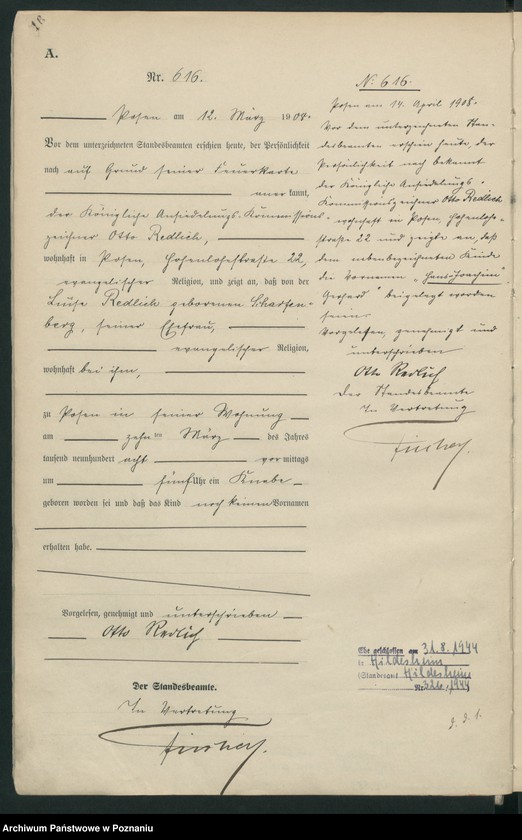 A.
Nr. 616.
Posen am 12. März 1908.
Vor dem unterzeichneten Standesbeamten erschien heute, der Persönlichkeit
nach auf Grund seiner Steuerkarte
anerkannt,
der Königliche Ansiedelungs-Kommissions-
zeichner Otto Redlich,
wohnhaft in Posen, Hohenlohestraße 22,
evangelischer Religion, und zeigt an, daß von der
Luise Redlich geborenen Scharfen-
berg, seiner Ehefrau,
evangelischer Religion,
wohnhaft bei ihm,
zu Posen in seiner Wohnung
am zehnten März des Jahres
tausend neunhundert acht vormittags
um fünf Uhr ein Knabe
geboren worden sei und daß das Kind noch keinen Vornamen
erhalten habe.
Vorgelesen, genehmigt und unterschrieben
Otto Redlich
Der Standesbeamte.
In Vertretung
N: 616.
Posen am 14. April 1908.
Vor dem unterzeichneten Stan-
desbeamten erschien heute, der
Persönlichkeit nach bekannt
der Königliche Ansiedelungs-
Kommissionszeichner Otto Redlich
wohnhaft in Posen, Hohenlohe-
straße 22 und zeigte an, daß
dem nebenbezeichneten Kinde
die Vornamen „Hans-Joachim
Gerhard" beigelegt worden
seien.
Vorgelesen, genehmigt und
unterschrieben
Otto Redlich
Der Standesbeamte
In Vertretung
Ehe geschlossen am 31.8.1944
in Hildesheim
(Standesamt Hildesheim
Nr. 326/1944
Archiwum Państwowe w Poznaniu